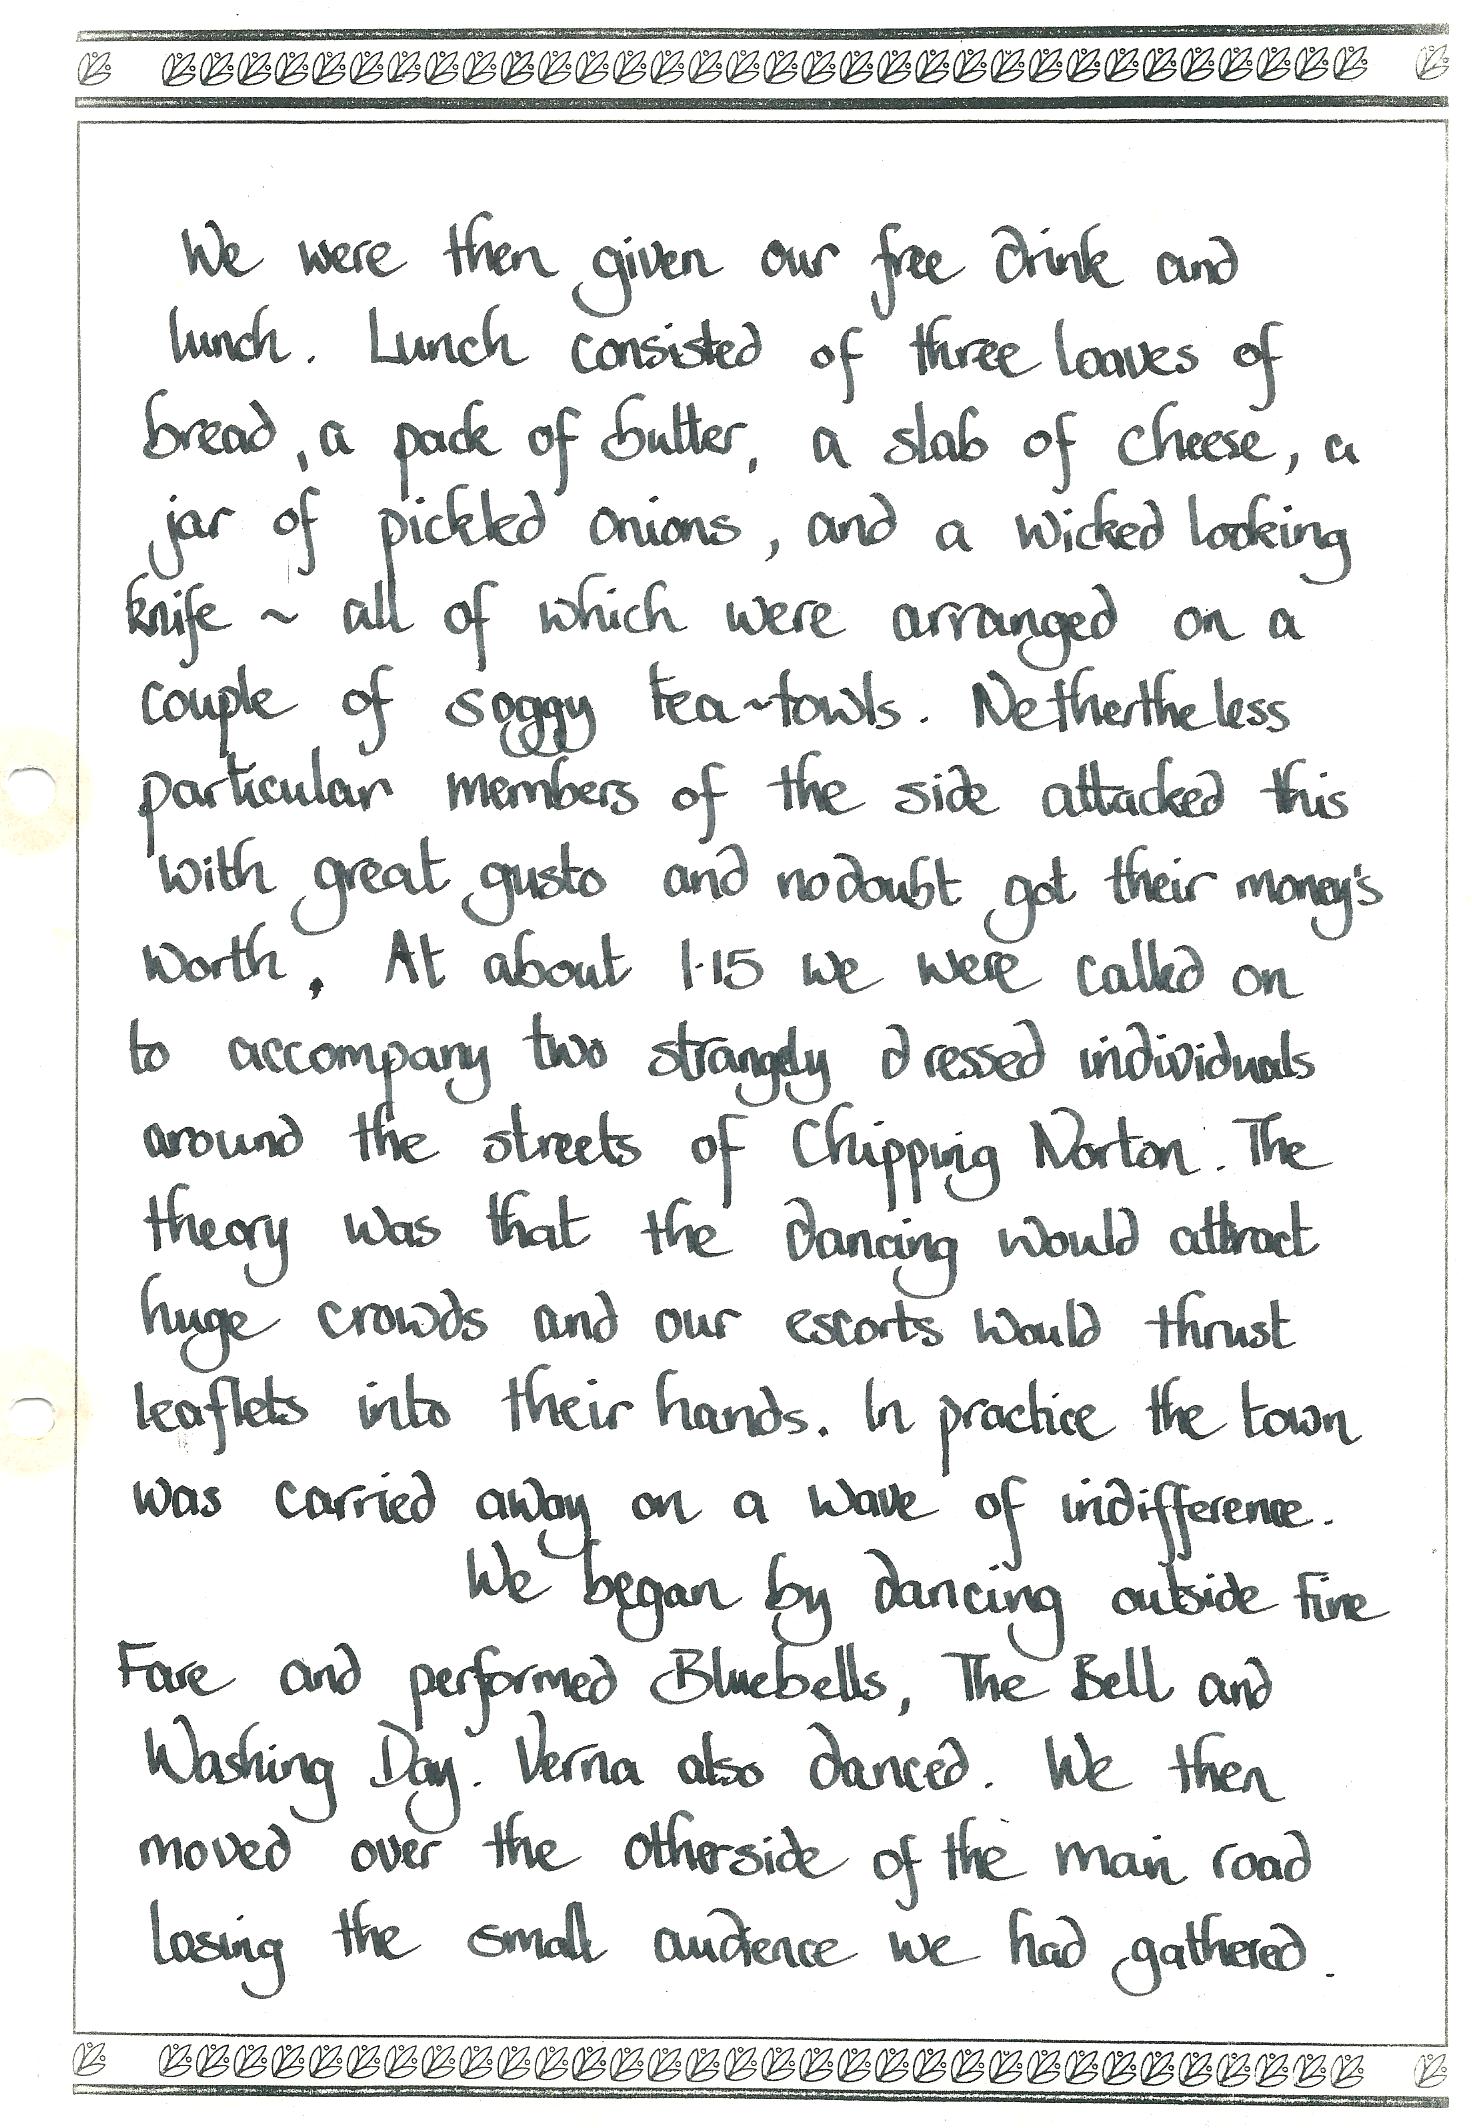 We were then given our free drink and
lunch. Lunch consisted of three loaves of
bread, a pack of butter, a slab of cheese, a
jar of pickled onions, and a wicked looking
knife ~ all of which were arranged on a
couple of soggy tea~towls. Nethertheless
particular members of the side attacked this
with great gusto and nodoubt got their money's
worth. At about 1.15 we were called on
to accompany two strangely dressed individuals
around the streets of Chipping Norton. The
theory was that the dancing would attract
huge crowds and our escorts would thrust
leaflets into their hands. In practice the town
was carried away on a wave of indifference.
We began by dancing outside Fine
Fare and performed Bluebells, The Bell and
Washing Day. Verna also danced. We then
moved over the otherside of the main road
losing the small audience we had gathered.